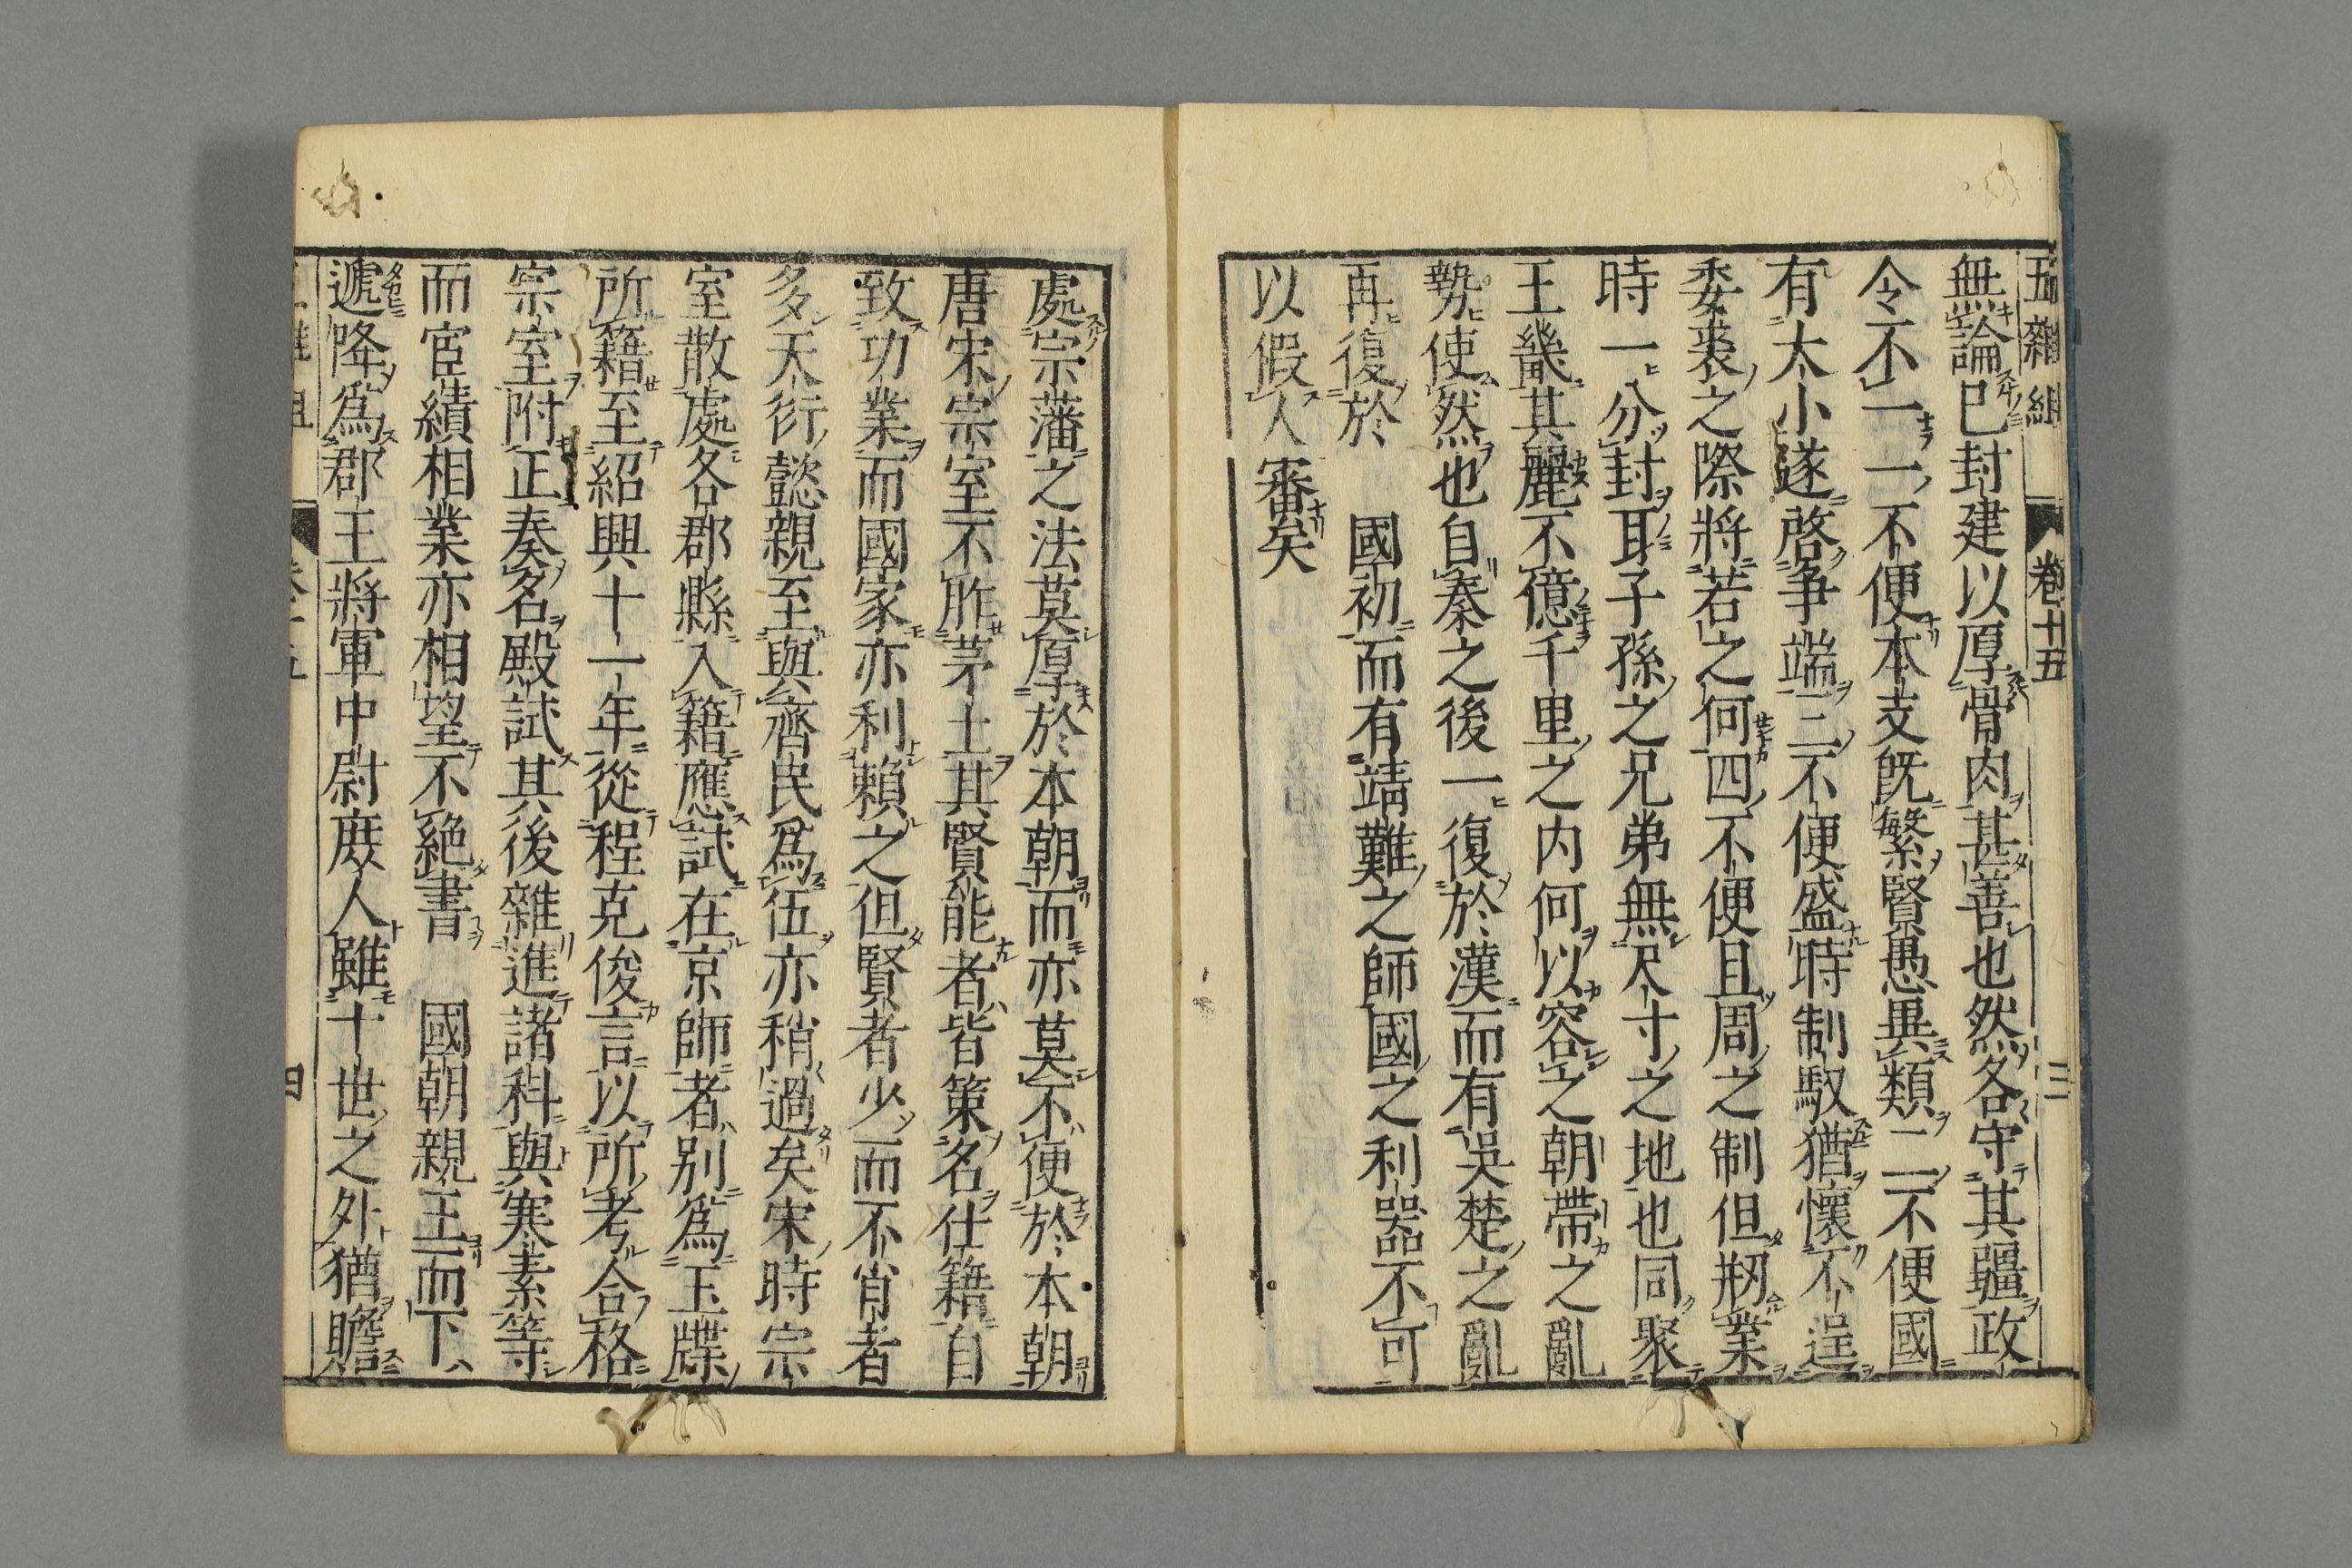 五雜組 卷十五 三
無論已封建以厚骨肉甚善也然各守其疆政
令不一一不便本支既繁賢愚異類二不便國
有大小遂啓爭端三不便盛時制馭猶懷不逞
委裘之際將若之何四不便且周之制但剏業
時一分封耳子孫之兄弟無尺寸之地也同聚
王畿其麗不億千里之内何以容之朝帶之亂
勢使然也自秦之後一復於漢而有吳楚之亂
再復於 國初而有靖難之師國之利器不可
以假人審矣
處宗藩之法莫厚於本朝而亦莫不便於本朝
唐宋宗室不胙茅土其賢能者皆策名仕籍自
致功業而國家亦利賴之但賢者少而不肖者
多天衍懿親至與齊民爲伍亦稍過矣宋時宗
室散處各郡縣入籍應試在京師者別爲玉牒
所籍至紹興十一年從程克俊言以所考合格
宗室附正奏名殿試其後雜進諸科與寒素等
而宦績相業亦相望不絶書 國朝親王而下
遞降爲郡王將軍中尉庶人雖十世之外猶贍